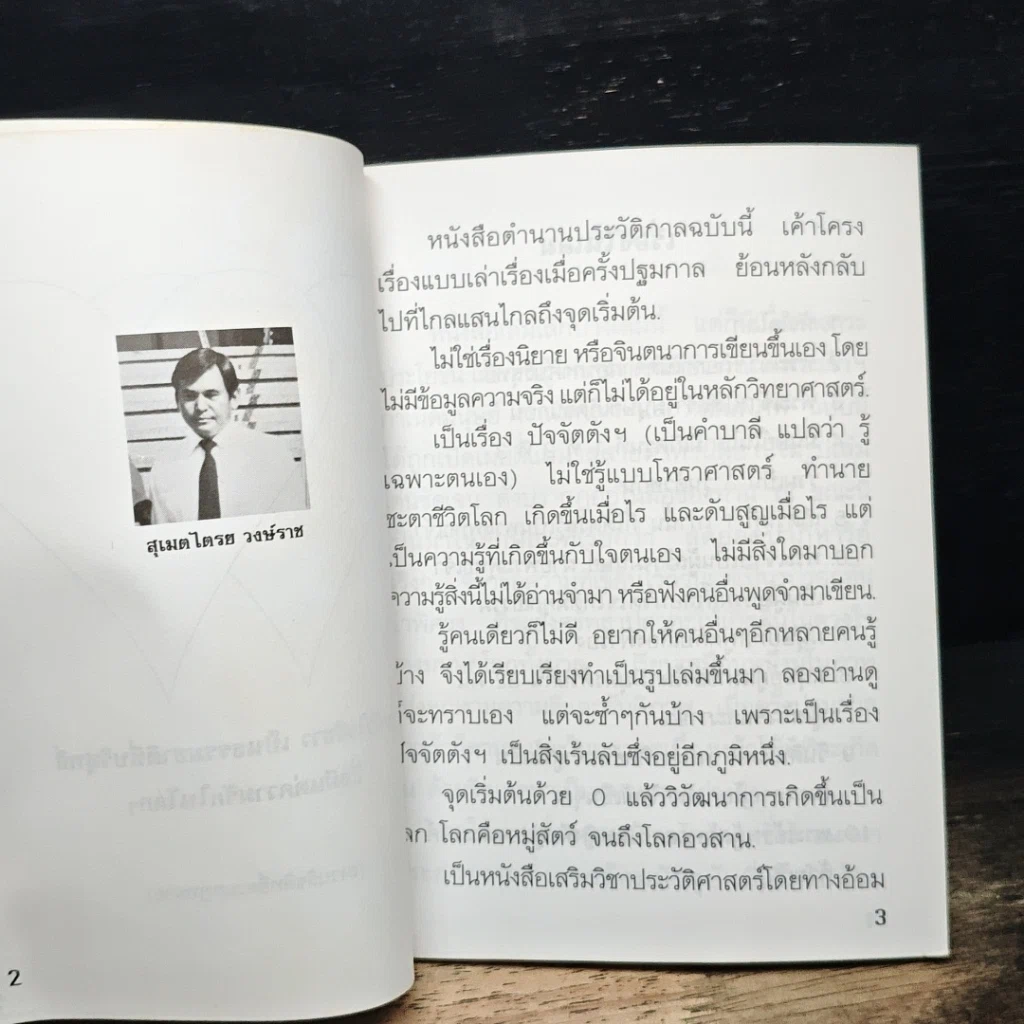 สุเมตไตรย วงษ์ราช
2
หนังสือตำนานประวัติกาลฉบับนี้ เค้าโครง
เรื่องแบบเล่าเรื่องเมื่อครั้งปฐมกาล ย้อนหลังกลับ
ไปที่ไกลแสนไกลถึงจุดเริ่มต้น.
ไม่ใช่เรื่องนิยาย หรือจินตนาการเขียนขึ้นเอง โดย
ไม่มีข้อมูลความจริง แต่ก็ไม่ได้อยู่ในหลักวิทยาศาสตร์.
เป็นเรื่อง ปัจจัตตังฯ (เป็นคำบาลี แปลว่า รู้
เฉพาะตนเอง) ไม่ใช่รู้แบบโหราศาสตร์ ทำนาย
ชะตาชีวิตโลก เกิดขึ้นเมื่อไร และดับสูญเมื่อไร แต่
เป็นความรู้ที่เกิดขึ้นกับใจตนเอง ไม่มีสิ่งใดมาบอก
ความรู้สิ่งนี้ไม่ได้อ่านจำมา หรือฟังคนอื่นพูดจำมาเขียน.
รู้คนเดียวก็ไม่ดี อยากให้คนอื่นๆอีกหลายคนรู้
บ้าง จึงได้เรียบเรียงทำเป็นรูปเล่มขึ้นมา ลองอ่านดู
ก็จะทราบเอง แต่จะซ้ำๆกันบ้าง เพราะเป็นเรื่อง
ปัจจัตตังฯ เป็นสิ่งเร้นลับซึ่งอยู่อีกภูมิหนึ่ง.
จุดเริ่มต้นด้วย 0 แล้ววิวัฒนาการเกิดขึ้นเป็น
โลก โลกคือหมู่สัตว์ จนถึงโลกอวสาน.
เป็นหนังสือเสริมวิชาประวัติศาสตร์โดยทางอ้อม
3